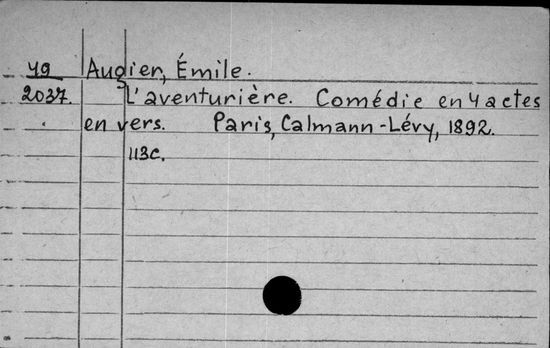 49 Augier, Émile.
2037. L'aventurière. Comédie en 4 actes
en vers. Paris, Calmann-Lévy, 1892.
113c.